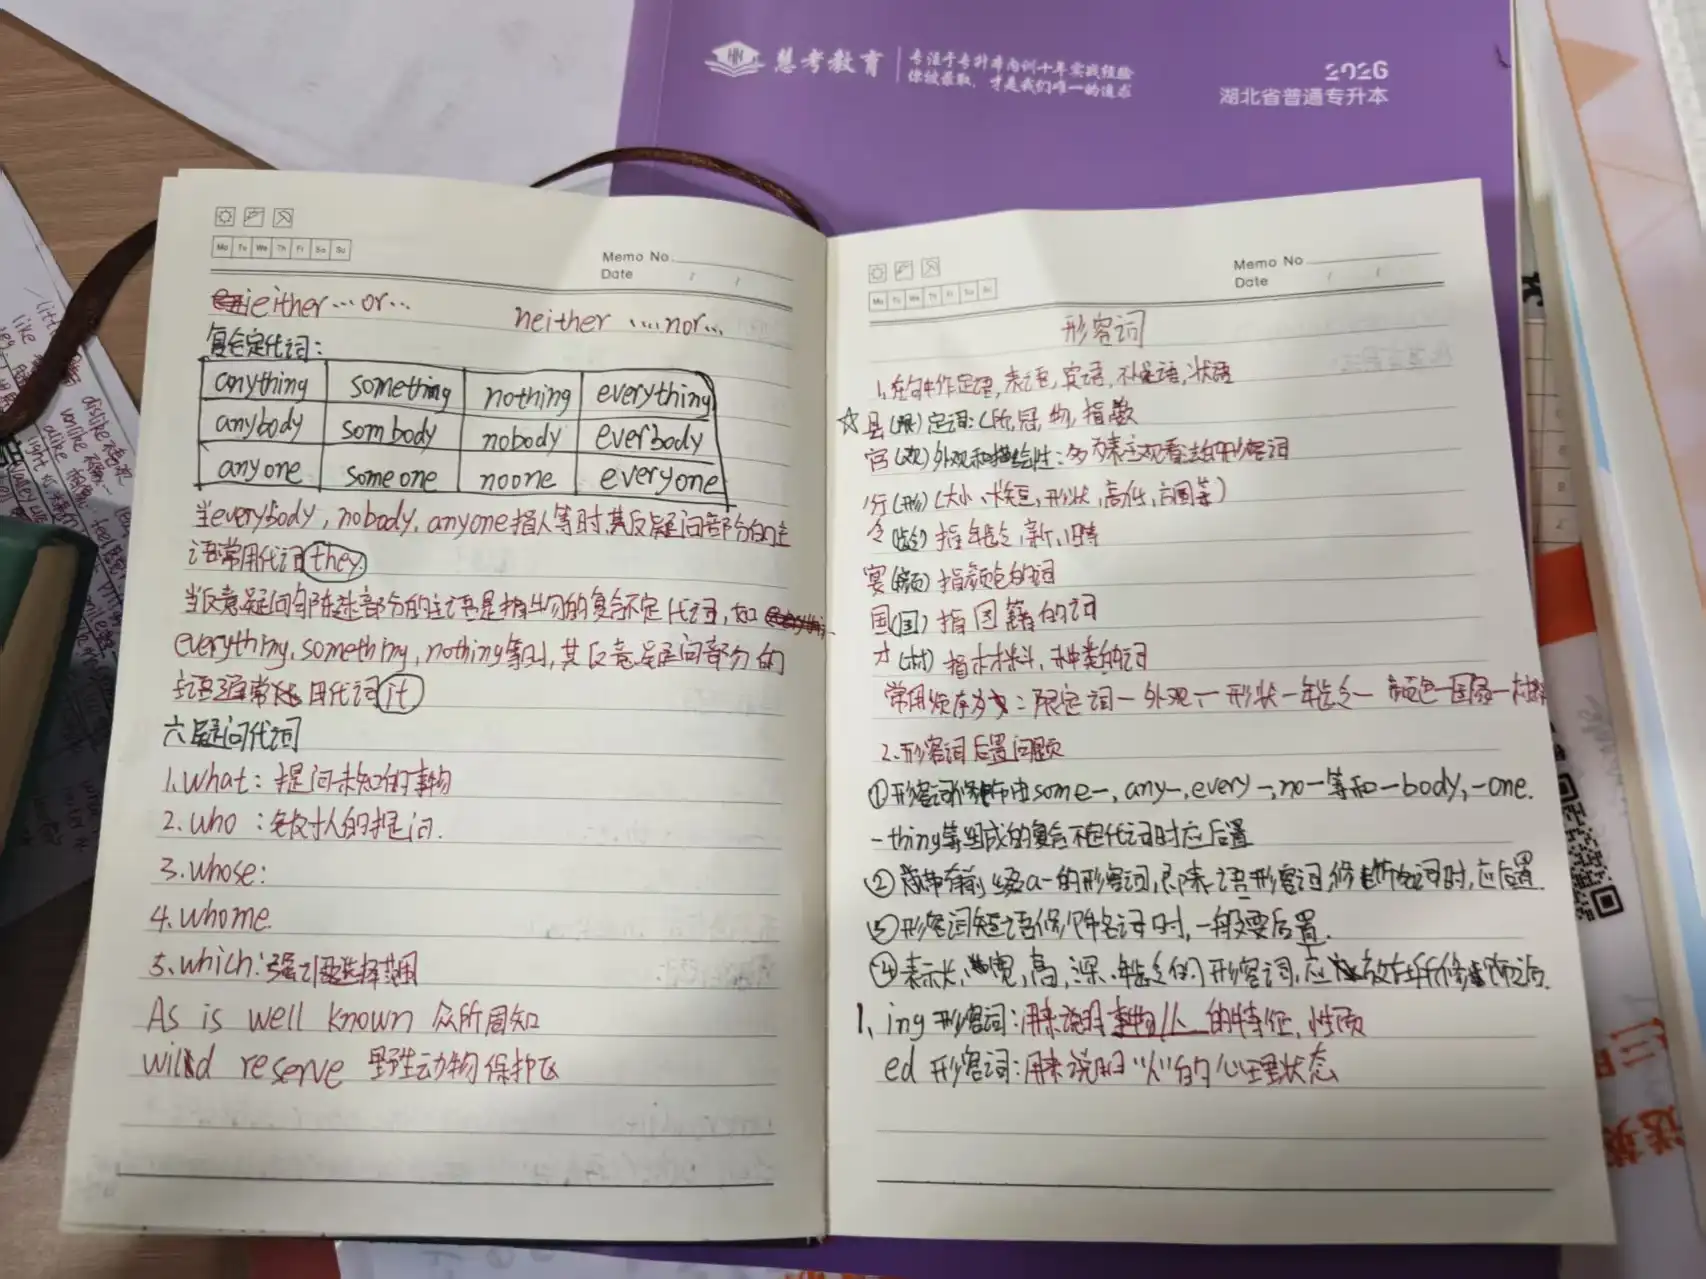 慧考教育
专注于专升本内训十年实战经验
你被录取，才是我们唯一的追求
2026
湖北省普通专升本
Mo Tu We Th Fr Sa Su
Memo No.
Date / /
either ... or ...
neither ... nor ...
复合定代词：
anything something nothing everything
anybody sombody nobody everbody
anyone someone noone everyone
当everybody, nobody, anyone指人等时,其反疑问部分的主
语常用代词they.
当反意疑问句陈述部分的主语是指物的复合不定代词，如
everything, something, nothing等时,其反意疑问部分的
主语通常用代词it
六.疑问代词
1.what：提问未知的事物
2.who：针对人的提问.
3.whose:
4.whome.
5.which:强调选择范围
As is well known 众所周知
wild reserve 野生动物保护区
Mo Tu We Th Fr Sa Su
Memo No
Date / /
形容词
1.在句中作定语,表语,宾语,补足语,状语
☆县(限)定词:(所,冠,物,指,数
官(观)外观和描绘性:多为表主观看法的形容词
行(形)(大小、长短,形状,高低,方圆等)
令(龄)指年龄,新、旧等
宴(颜)指颜色的词
国(国)指国籍的词
才(材)指材料、种类的词
常用顺序为：限定词一外观一形状一年龄一颜色一国籍一材料
2.形容词后置问题
①形容词修饰由some一, any一, every一, no一等和一body,一one.
-thing等组成的复合不定代词时应后置
②带有前缀a-的形容词,即表语形容词,修饰名词时,应后置.
③形容词短语修饰名词时,一般要后置.
④表示长、宽,高,深、年龄的形容词,应放在所修饰词后.
1、ing 形容词:用来说明事物/人的特征,性质
ed 形容词:用来说明"人"的心理状态